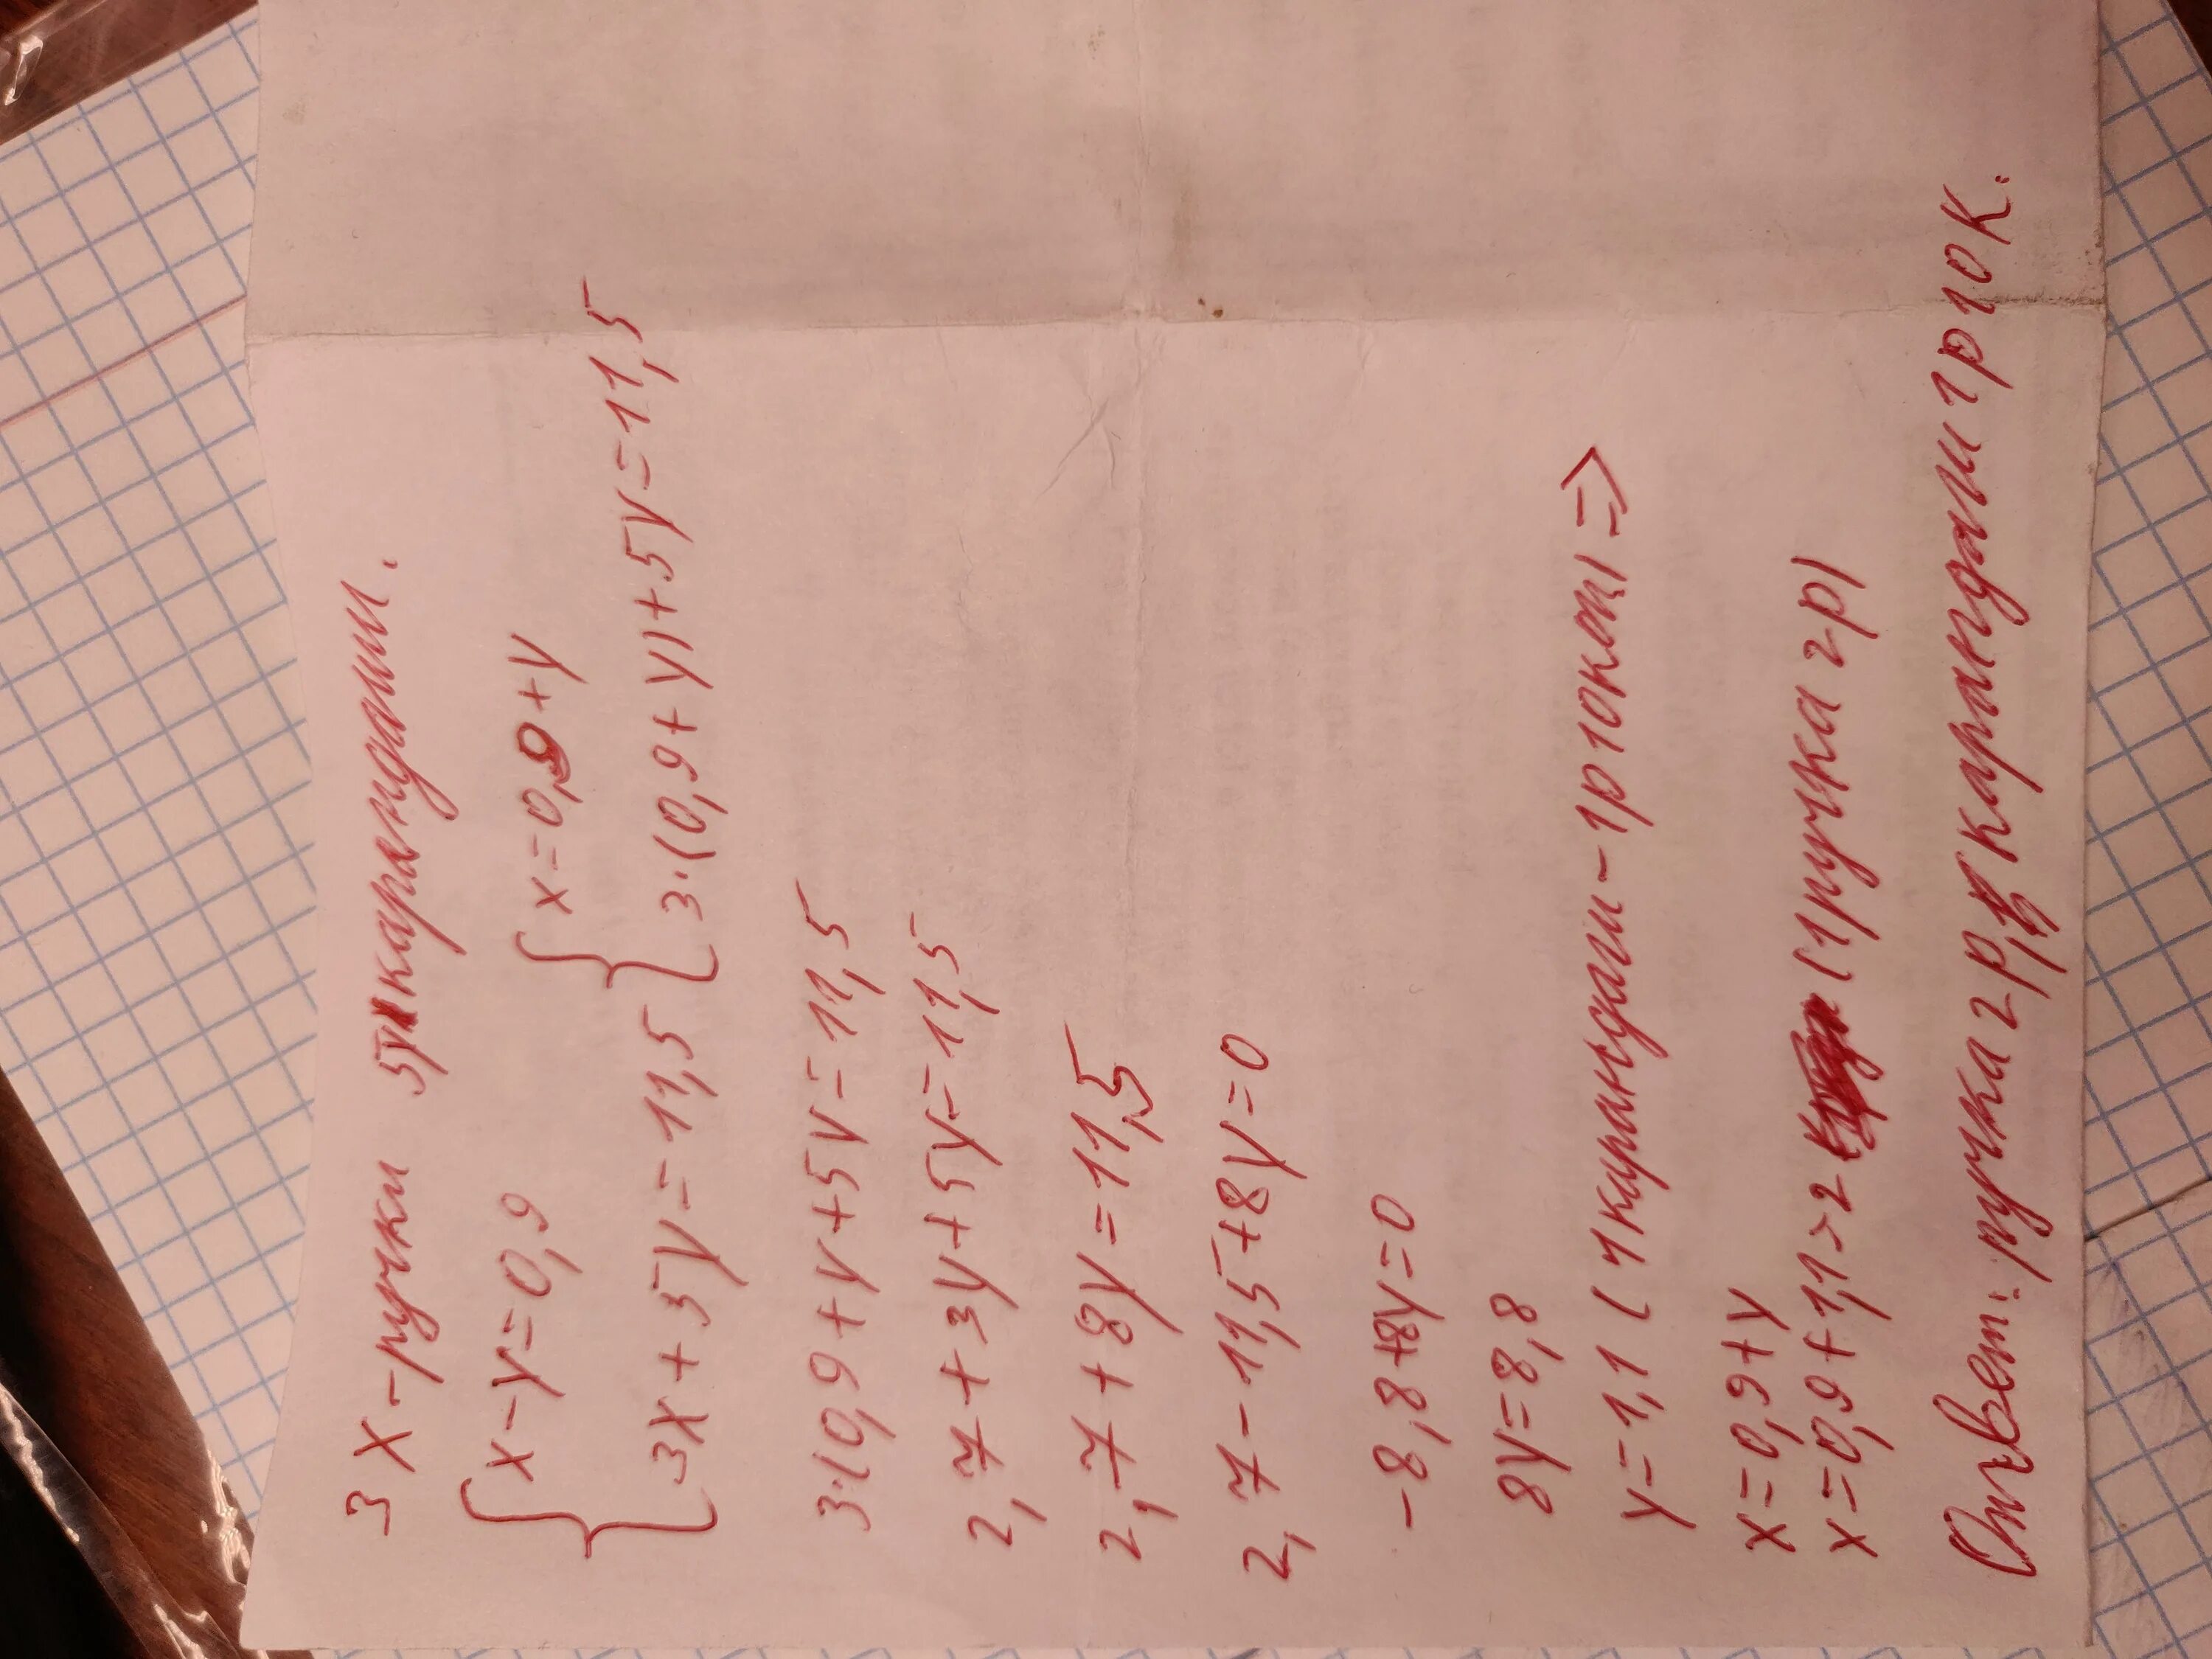 3 х-ручки 5у карандаши.
{х-у=0,9 {х=0,9+у
{3х+5у=11,5 {3·(0,9+у)+5у=11,5
3·(0,9+у+5у=11,5
2,7+3у+5у=11,5
2,7+8у=11,5
2,7-11,5+8у=0
-8,8+8у=0
8у=8,8
у=1,1 (1карандаш-1р10коп)=>
х=0,9+у
х=0,9+1,1>2 (1ручка 2р)
Ответ: ручка 2р, карандаш 1р 10к.